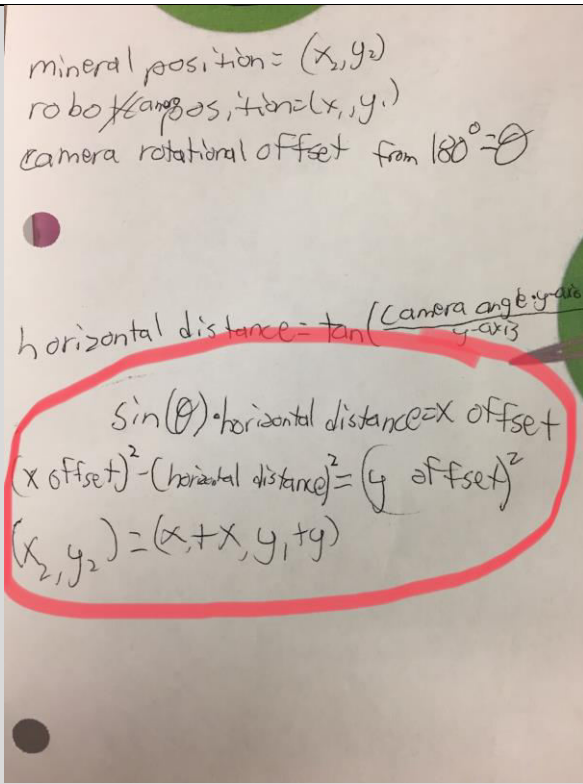 mineral position = (x₂, y₂)
robot position=(x₁, y₁)
camera rotational offset from 180°=θ
horizontal distance= tan(camera angle·y-axis
y-axis
sin(θ)·horizontal distance=x offset
(x offset)²-(horizontal distance)²=(y offset)²
(x₂, y₂)=(x₁+x, y₁+y)